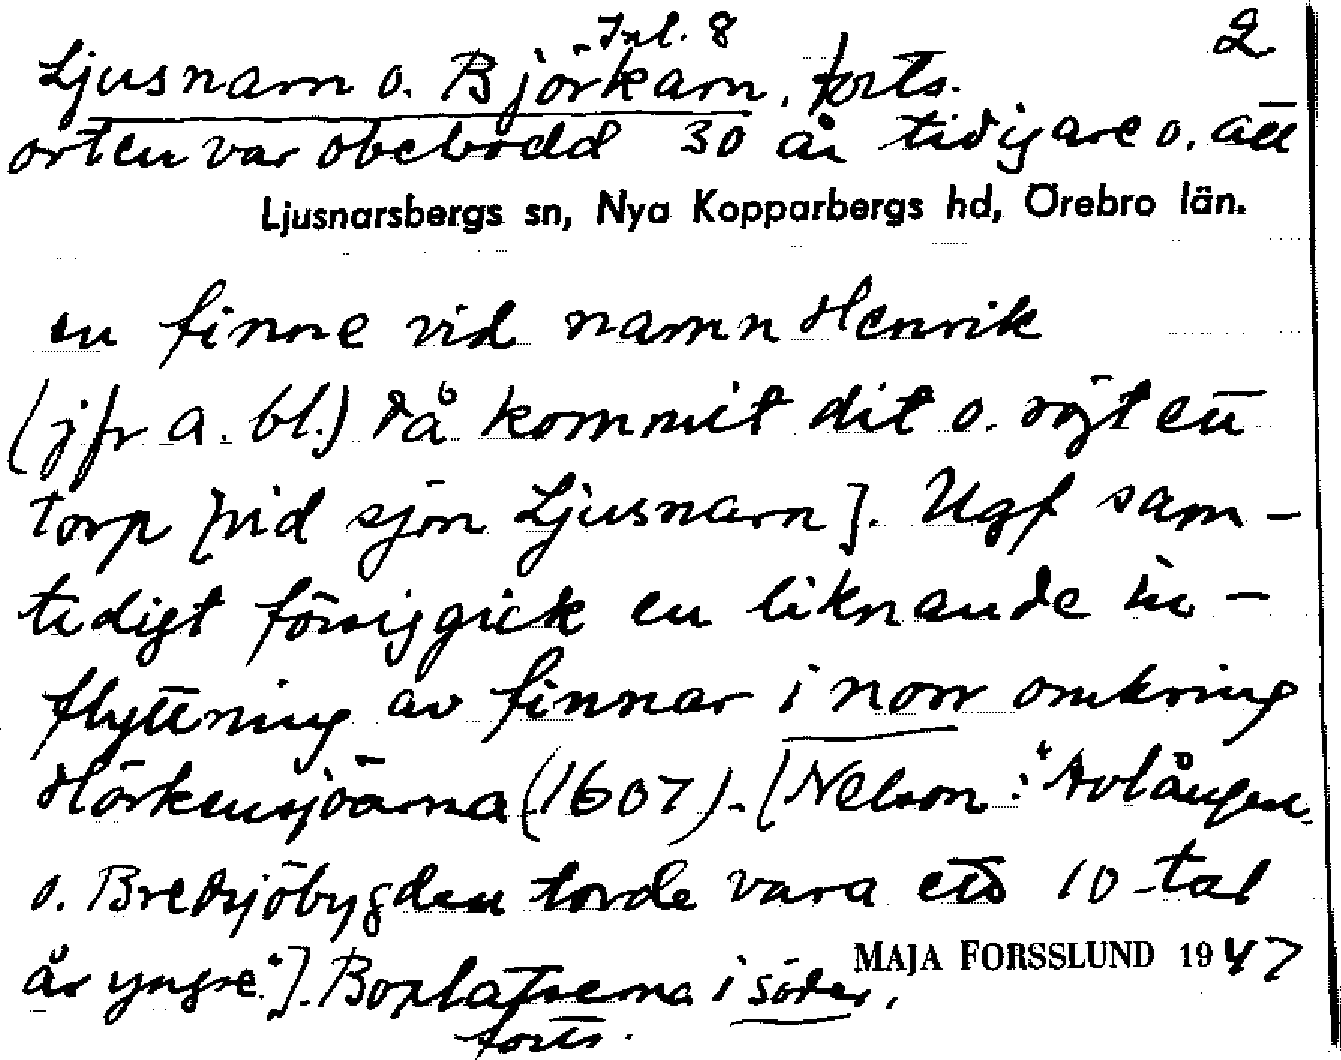 Inl. 8
2
Ljusnarn o. Björkarn, forts.
orten var obebodd 30 år tidigare o. att
Ljusnarsbergs sn, Nya Kopparbergs hd, Örebro län.
en finne vid namn Henrik
(jfr a. bl.) då kommit dit o. röjt ett
torp [vid sjön Ljusnarn]. Ugf sam-
tidigt försiggick en liknande in-
flyttning av finnar i norr omkring
Hörkensjöarna (1607). [Nelson: "Avlången
o. Bredsjöbygden torde vara ett 10-tal
år yngre."]. Boplatserna i söder,
MAJA FORSSLUND 1947
forts.